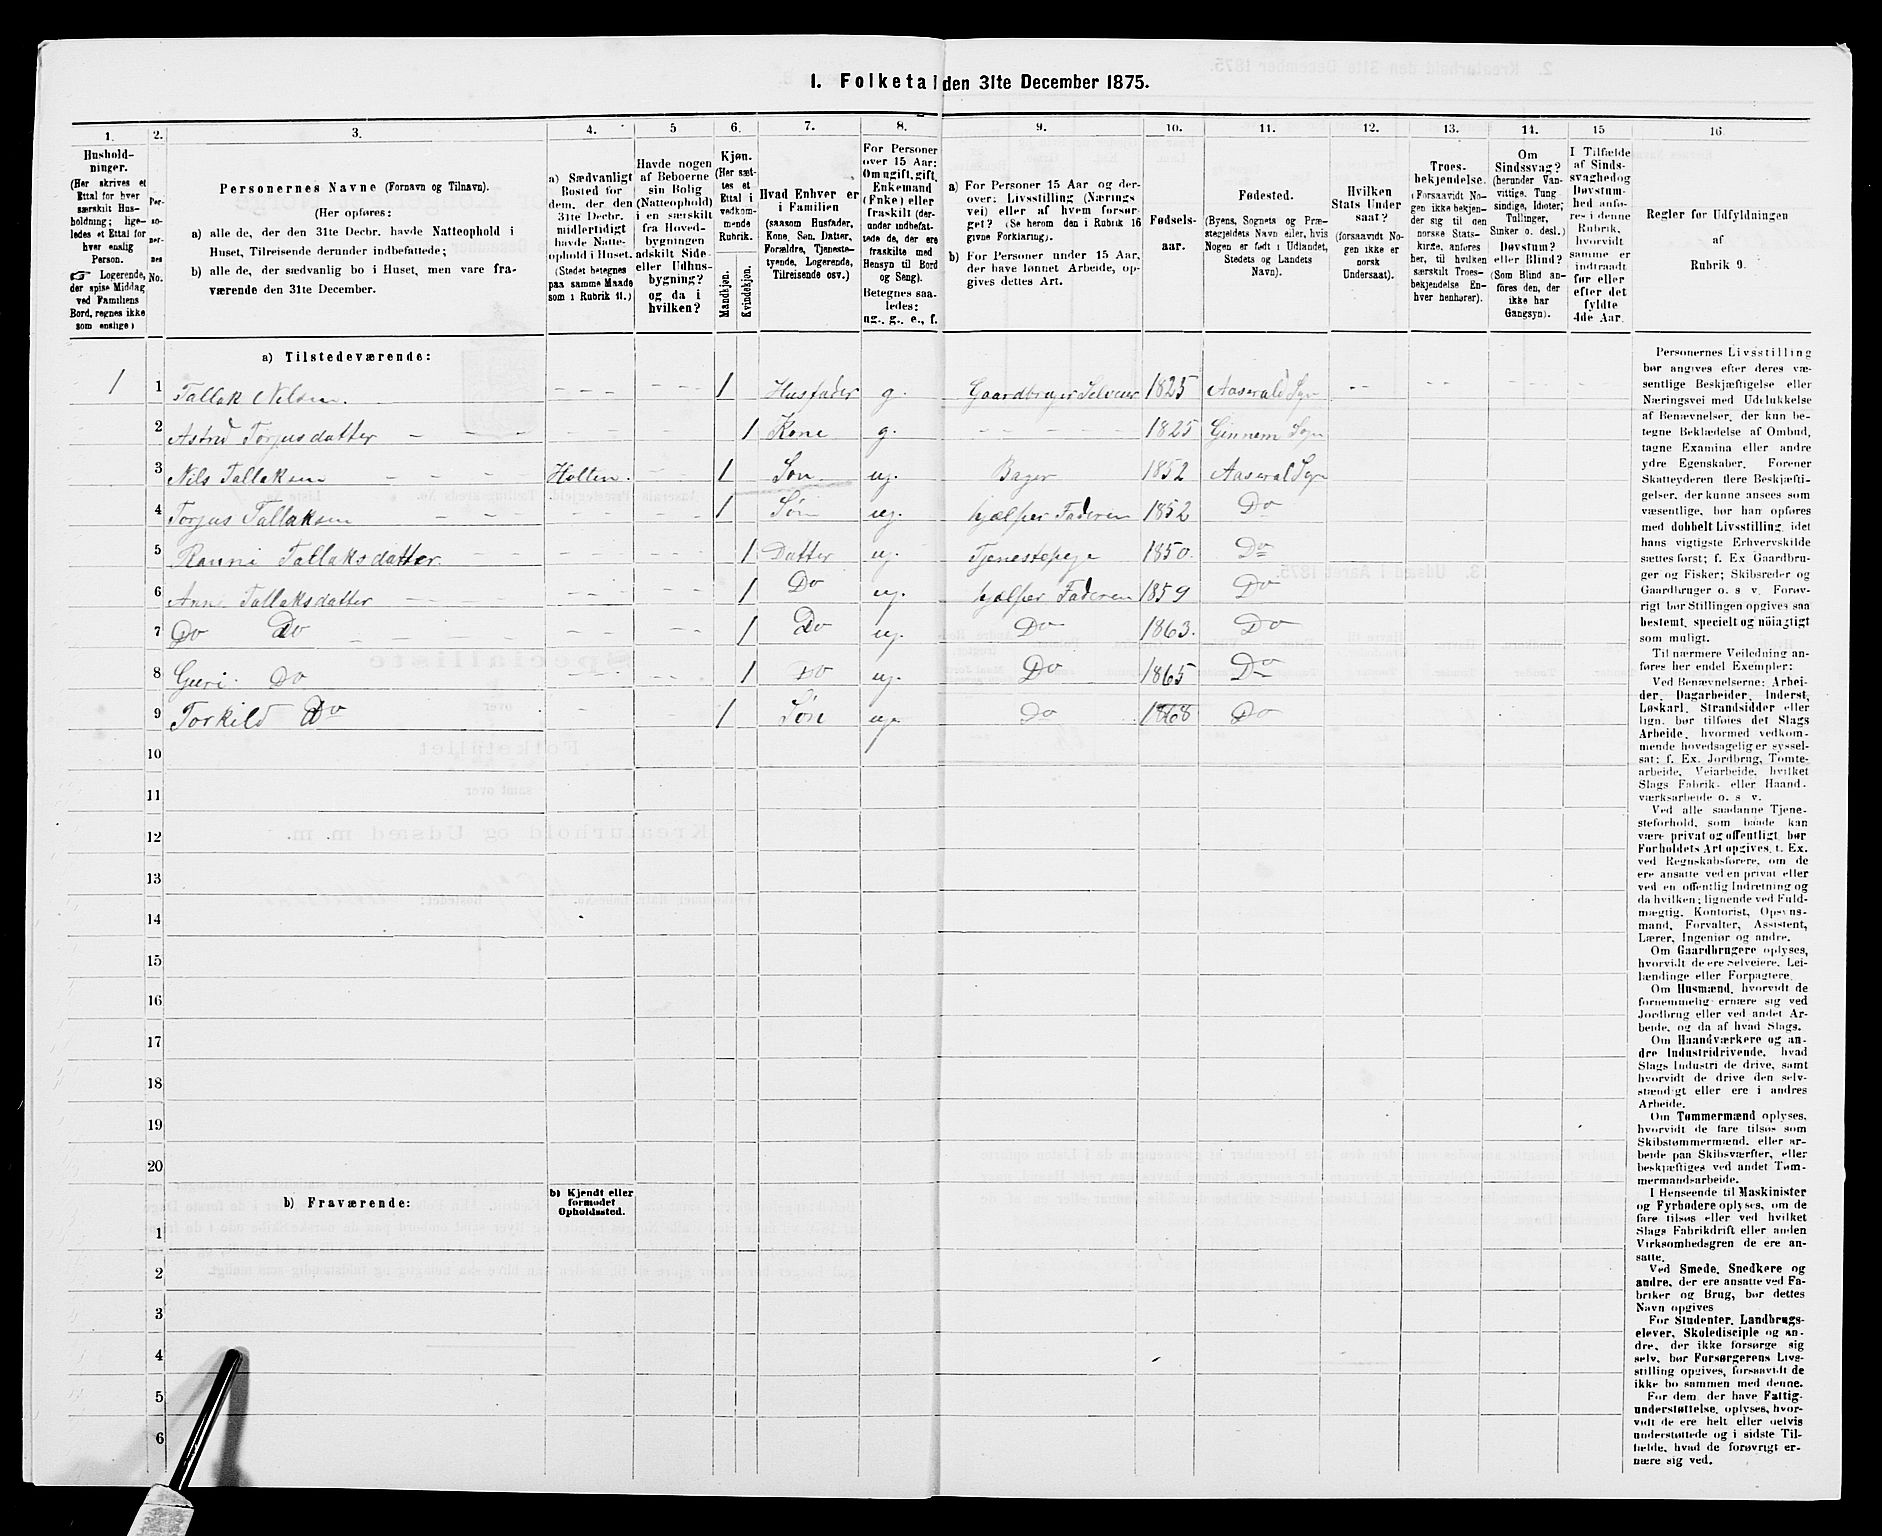 1. Folketal den 31te December 1875.
1.
Hushold-
ninger.
(Her skrives et
Ettal for hver
særskilt Hus-
holdning; lige-
ledes et Ettal for
hver enslig
Person.
Logerende,
der spise Middag
ved Familiens
Bord, regnes ikke
som enslige)
2.
Per-
so-
ner-
nes
No.
3.
Personernes Navne (Fornavn og Tilnavn).
(Her opføres:
a) alle de, der den 31te Decbr. havde Natteophold i
Huset, Tilreisende derunder indbefattede;
b) alle de, der sædvanlig bo i Huset, men vare fra-
værende den 31te December.
4.
a) Sædvanligt
Bosted for
dem, der den
31te Decbr.
midlertidigt
havde Natte-
ophold i Huset.
(Stedet betegnes
paa samme Maade
som i Rubrik 11.)
5
Havde nogen
af Beboerne
sin Bolig
(Natteophold)
i en særskilt
fra Hoved-
bygningen
adskilt Side-
eller Udhus-
bygning?
og da i
hvilken?
6.
Kjøn.
(Her sæt-
tes et
Ettal i
vedkom-
mende
Rubrik.
Mandkjøn.
Kvindekjøn.
7.
Hvad Enhver er
i Familien
(saasom Husfader,
Kone, Søn, Datter,
Forældre, Tjeneste-
tyende, Logerende,
Tilreisende osv.)
8.
For Personer
over 15 Aar:
Om ugift, gift,
Enkemand
(Enke) eller
fraskilt (der-
under indbefat-
tede de, der ere
fraskilte med
Hensyn til Bord
og Seng).
Betegnes saa-
ledes:
ug., g., e., f.
9.
a) For Personer 15 Aar og der-
over: Livsstilling (Nærings-
vei) eller af hvem forsør-
get? (Se herom den i Rubrik 16
givne Forklaring).
b) For Personer under 15 Aar,
der have lønnet Arbeide, op-
gives dettes Art.
10.
Fødsels-
aar.
11.
Fødested.
(Byens, Sognets og Præ-
stegjeldets Navn eller, hvis
Nogen er født i Udlandet,
Stedets og Landets
Navn).
12.
Hvilken
Stats Under
saat?
(forsaavidt No-
gen ikke er
norsk
Undersaat).
13.
Troes-
bekjendelse.
(Forsaavidt No-
gen ikke bekjen-
der sig til den
norske Stats-
kirke, anføres
her, til hvilken
særskilt Troes-
bekjendelse En-
hver henhører).
14.
Om
Sindssvag?
(herunder Van-
vittige, Tung-
sindige, Idioter,
Tullinger,
Sinker o. desl.)
Døvstum?
eller Blind?
(Som Blind an-
føres den, der
ikke har
Gangsyn).
15
I Tilfælde
af Sinds-
svaghed og
Døvstum-
hed anfø-
res i denne
Rubrik,
hvorvidt
samme er
indtraadt
før eller
efter det
fyldte
4de Aar.
16
Regler for Udfyldningen
af
Rubrik 9.
a) Tilstedeværende:
1 1 Tallak Nilsen. 1 Husfader g. Gaardbruger Selveier 1825 Aaseral Sogn
2 Astrid Torjusdatter 1 Kone g. 1825 Ginnem Sogn
3 Nils Tallaksen Holten. 1 Søn ug. Bager 1852 Aaseral Sogn
4 Torjus Tallaksen 1 Søn ug. hjælper Faderen 1852 Do
5 Ranni Tallaksdatter 1 Datter ug. Tjenestepige 1850. Do
6 Anne Tallaksdatter 1 Do ug. hjælper Faderen 1859 Do
7 Do Do 1 Do ug. Do 1863. Do
8 Guri Do 1 Do ug. Do 1865 Do
9 Torkild Do 1 Søn ug. Do 1868 Do
10
11
12
13
14
15
16
17
18
19
20
b) Fraværende:
b) Kjendt eller
formodet
Opholdssted.
1
2
3
4
5
6
Personernes Livsstilling
bør angives efter deres væ-
sentlige Beskjæftigelse eller
Næringsvei med Udelukkelse
af Benævnelser, der kun be-
tegne Beklædelse af Ombud,
tagne Examina eller andre
ydre Egenskaber. Forener
Skatteyderen flere Beskjæfti-
gelser, der kunne ansees som
væsentlige, bør han opføres
med dobbelt Livsstilling, idet
hans vigtigste Erhvervskilde
sættes først; f. Ex Gaardbru-
ger og Fisker; Skibsreder og
Gaardbruger o. s v. Forøv-
rigt bør Stillingen opgives saa
bestemt, specielt og nöiagtigt
som muligt.
Til nærmere Veiledning an-
føres her endel Exempler:
Ved Benævnelserne: Arbei-
der, Dagarbeider, Inderst,
Løskarl, Strandsidder eller
lign. bør tilføies det Slags
Arbeide, hvormed vedkom-
mende hovedsagelig er syssel-
sat; f. Ex. Jordbrug, Tomte-
arbeide, Veiarbeide, hvilket
Slags Fabrik- eller Haand-
værksarbeide o. s v.
Ved alle saadanne Tjene-
steforhold, som baade kan
være privat og offentligt, bør
Forholdets Art opgives, t. Ex.
ved Regnskabsførere, om de
ere ansatte ved en privat eller
ved en offentlig Indretning og
da hvilken; lignende ved Fuld-
mægtig, Kontorist, Opsyns-
mand, Forvalter, Assistent,
Lærer, Ingeniør og andre.
Om Gaardbrugere oplyses,
hvorvidt de ere Selveiere, Lei-
lændinge eller Forpagtere.
Om Husmænd, hvorvidt de
fornemmelig ernære sig ved
Jordbrug eller ved andet Ar-
beide, og da af hvad Slags.
Om Haandværkere og an-
dre Industridrivende, hvad
Slags Industri de drive, samt
hvorvidt de drive den selv-
stændigt eller ere i andres
Arbeide.
Om Tømmermænd oplyses,
hvorvidt de fare tilsøs som
Skibstømmermænd, eller ar-
beide paa Skibsværfter, eller
beskjæftiges ved andet Tøm-
mermandsarbeide.
I Henseende til Maskinister
og Fyrbødere oplyses, om de
fare tilsøs eller ved hvilket
Slags Fabrikdrift eller anden
Virksomhedsgren de ere an-
satte.
Ved Smede, Snedkere og
andre, der ere ansatte ved Fa-
briker og Brug, bør dettes
Navn opgives
For Studenter, Landbrugs-
elever, Skoledisciple og an-
dre, der ikke forsørge sig
selv, bør Forsørgerens Livs-
stilling opgives, forsaavidt de
ikke bo sammen med denne.
For dem, der have Fattig-
understøttelse, oplyses, hvor-
vidt de ere helt eller delvis
understøttede og i sidste Til-
fælde, hvad de forøvrigt er-
nære sig ved.